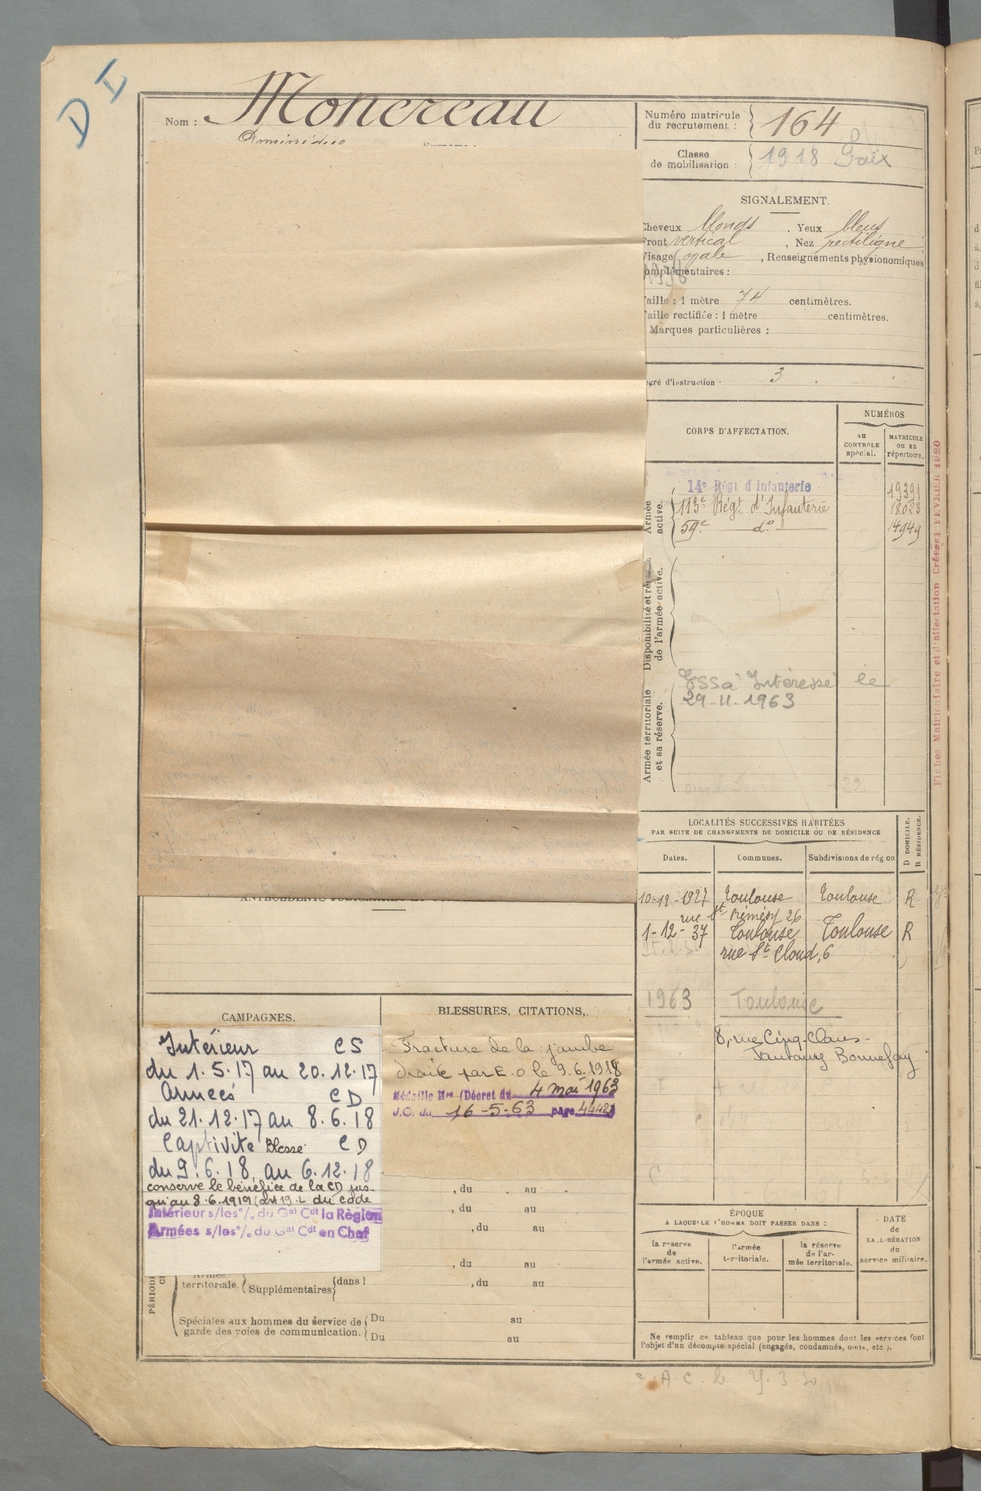 D I
Nom : Moncreau
Dominique
Numéro matricule
du recrutement : 164
Classe
de mobilisation : 1918 Paix
SIGNALEMENT.
Cheveux blonds . Yeux bleus
Front vertical , Nez rectiligne
Visage ovale , Renseignements physionomiques
complémentaires :
Taille : 1 mètre 74 centimètres.
Taille rectifiée : 1 mètre centimètres.
Marques particulières :
egré d'instruction 3
CORPS D'AFFECTATION.
NUMÉROS
au
CONTROLE
spécial.
MATRICULE
ou au
répertoire.
Armée
active.
14e Régt d'Infanterie 19391
113e Régt d'Infanterie 18023
59e do 14949
Disponibilité et
de l'armée active.
Armée territoriale
et sa réserve.
Intéressé le
29-11-1963
Fiches Matriculaire et d'affectation Créées FÉVRIER 1920
LOCALITÉS SUCCESSIVES HABITÉES
PAR SUITE DE CHANGEMENTS DE DOMICILE OU DE RÉSIDENCE
D DOMICILE.
R RÉSIDENCE.
Dates. Communes. Subdivisions de région
10-12-1927 Toulouse Toulouse R
rue St 26
1-12-37 Toulouse Toulouse R
rue St Cloud, 6
1963 Toulouse
8, rue Cinq-Clous-
Bonnefoy
CAMPAGNES.
Intérieur CS
du 1.5.17 au 20.12.17
Armées CD
du 21.12.17 au 8.6.18
Captivité Blessé CD
du 9.6.18 au 6.12.18
conserve le bénéfice de la CD jus-
qu'au 8.6.1919 (art 19-L du code
Intérieur s/les °/. du Gal Cdt la Région
Armées s/les °/. du Gal Cdt en Chef
BLESSURES, CITATIONS,
Fracture de la jambe
droite par E.O le 9.6.1918
Médaille Mre (Décret du 4 mai 1963
J.O. du 16-5-63 page 4442)
, du au
, du au
, du au
, du au
territoriale. Supplémentaires dans l , du au
Spéciales aux hommes du service de
garde des voies de communication. Du au
Du au
ÉPOQUE
A LAQUELLE L'HOMME DOIT PASSER DANS :
DATE
de
LA LIBÉRATION
du
service militaire.
la réserve
de
l'armée active.
l'armée
territoriale.
la réserve
de l'ar-
mée territoriale.
Ne remplir ce tableau que pour les hommes dont les services font
l'objet d'un décompte spécial (engagés, condamnés, omis, etc.).